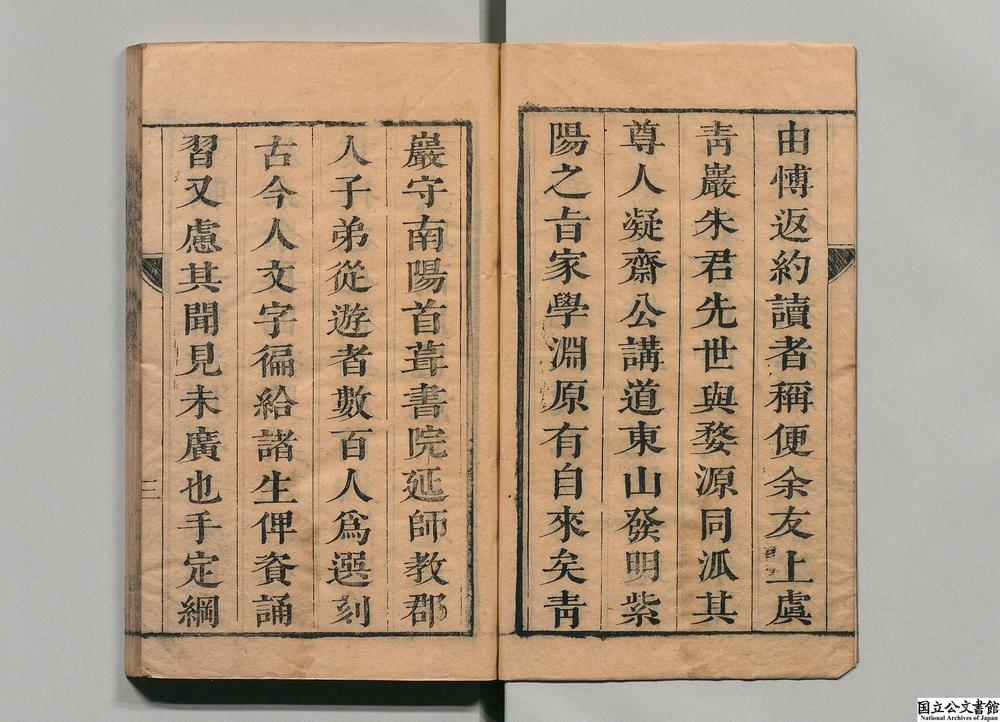 由愽返約讀者稱便余友上虞
靑巖朱君先世與婺源同派其
尊人凝齋公講道東山發明紫
陽之旨家學淵原有自來矣靑
巖守南陽首葺書院延師教郡
人子弟從遊者數百人爲選刻
古今人文字徧給諸生俾資誦
習又慮其聞見未廣也手定綱
三
国立公文書館
National Archives of Japan